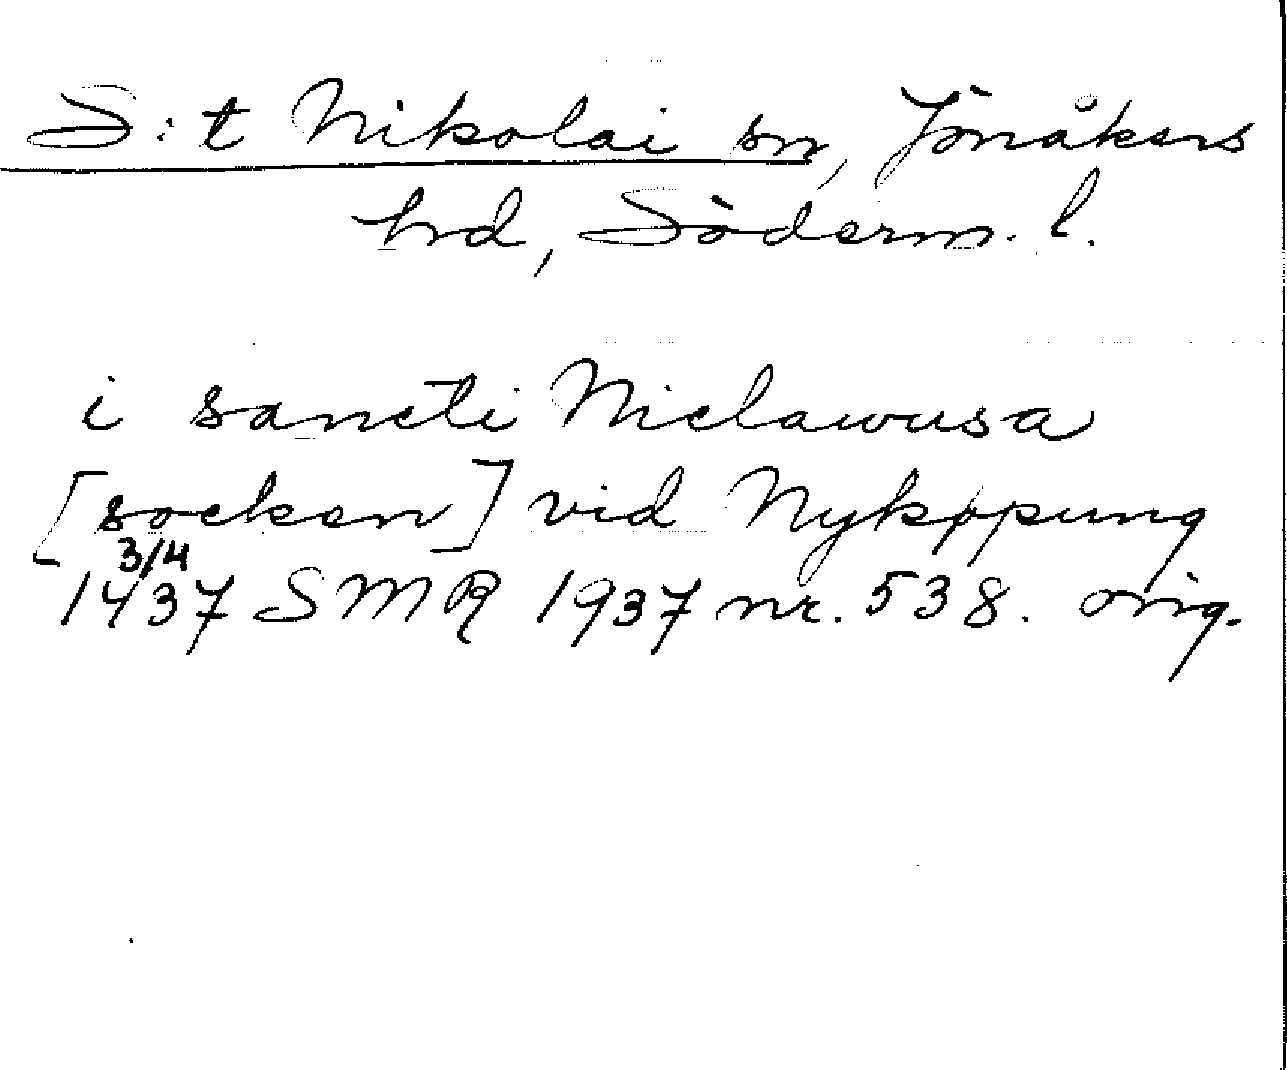 S:t Nikolai sn, Jönåkers
hrd, Söderm. l.
i sancti Niclawusa
[socken] vid Nykøpung
3/4
1437 SMR 1937 nr. 538. orig.